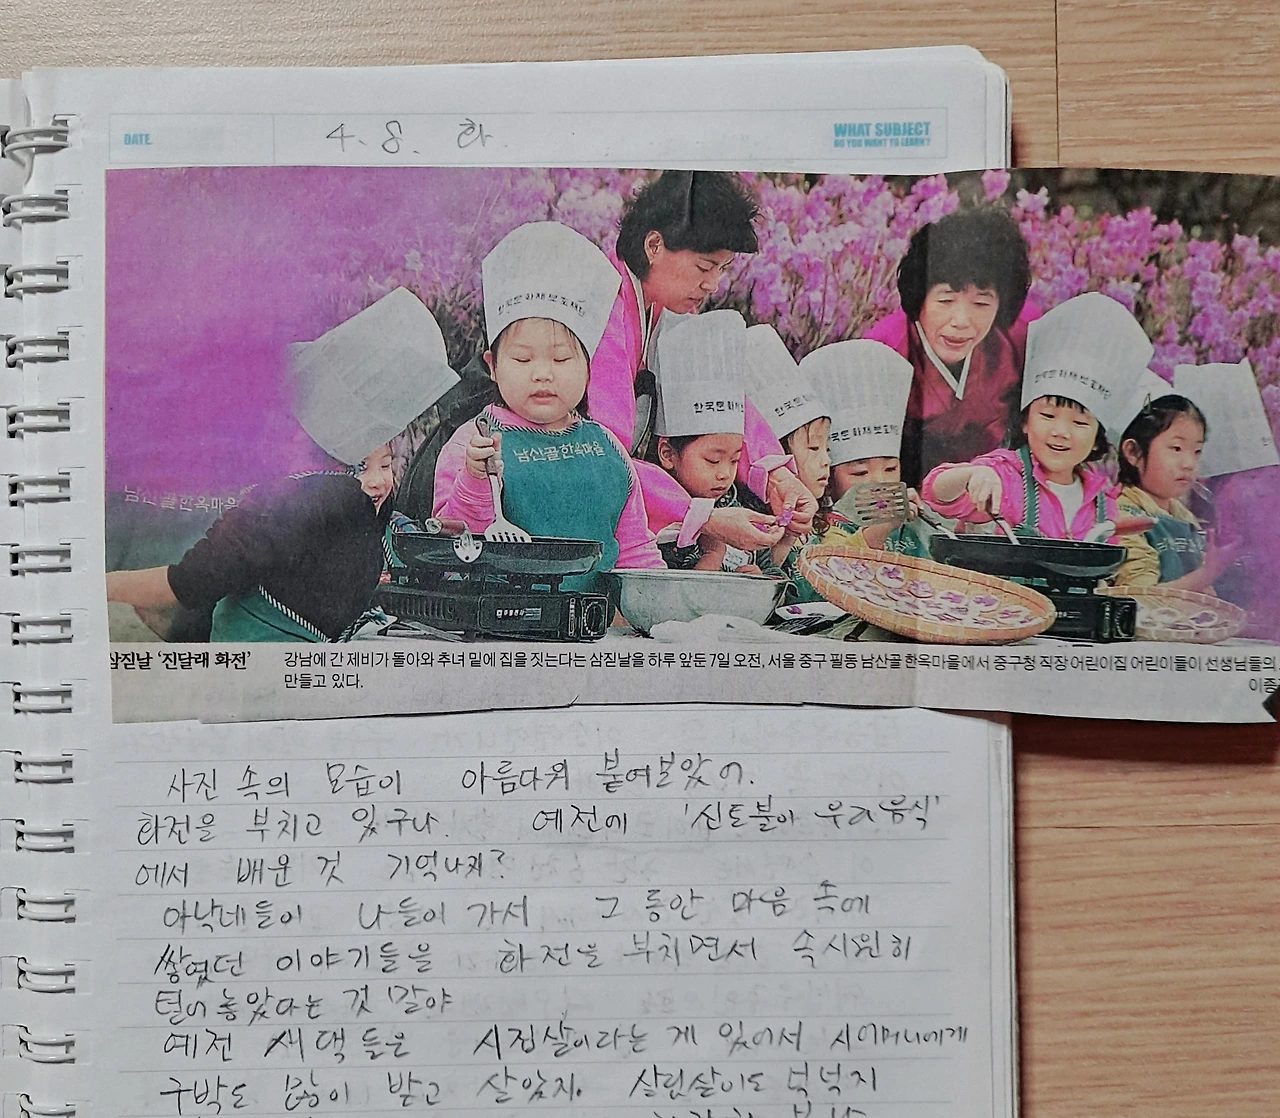 DATE.
4. 8. 화.
WHAT SUBJECT
DO YOU WANT TO LEARN?
한국문화재보호재단
남산골한옥마을
한국문화재
한국문
한국문화재보호재
한국문화재보호재단
남산골한옥마을
삼짇날 '진달래 화전'
강남에 간 제비가 돌아와 추녀 밑에 집을 짓는다는 삼짇날을 하루 앞둔 7일 오전, 서울 중구 필동 남산골 한옥마을에서 중구청 직장 어린이집 어린이들이 선생님들의
만들고 있다.
사진 속의 모습이 아름다워 붙여보았어.
화전을 부치고 있구나. 예전에 '신토불이 우리음식'
에서 배운 것 기억나지?
아낙네들이 나들이 가서 ... 그 동안 마음 속에
쌓였던 이야기들을 화전을 부치면서 속시원히
털어 놓았다는 것 말야
예전 새댁들은 시집살이라는 게 있어서 시어머니에게
구박도 많이 받고 살았지. 살림살이도 넉넉지